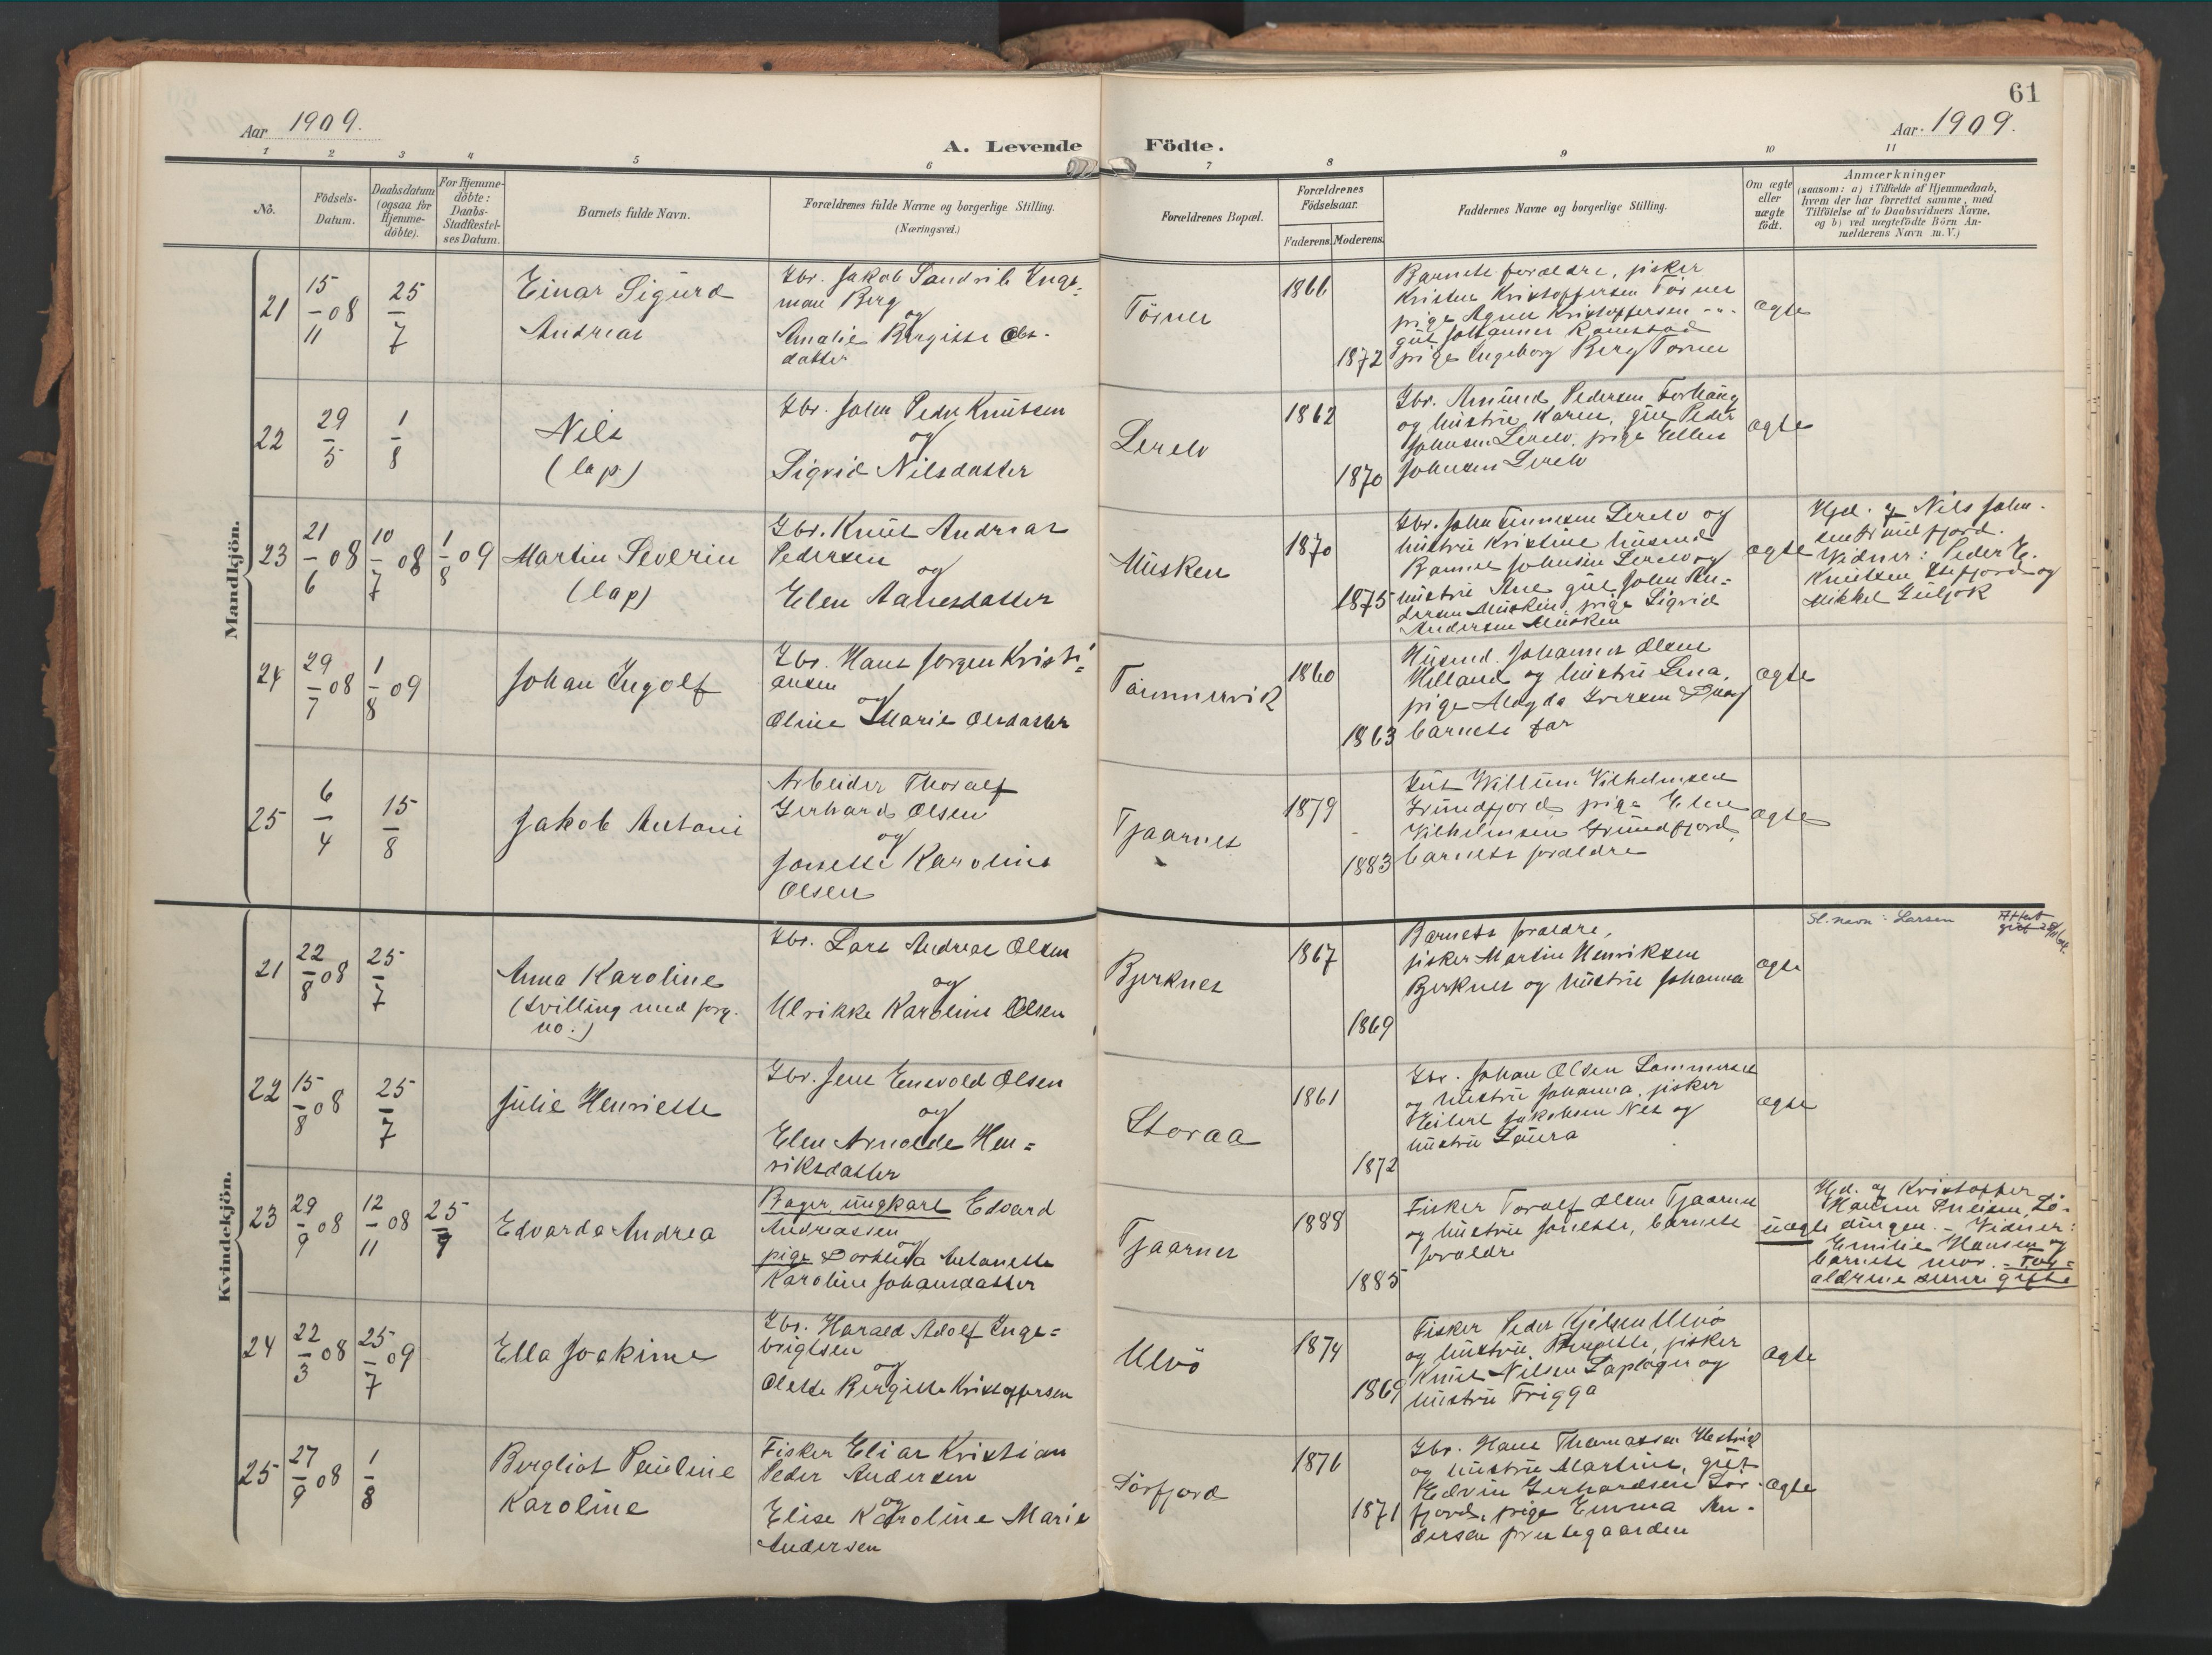 61
Aar 1909.
Aar 1909.
A. Levende Födte.
1 2 3 4 5 6 7 8 9 10 11
No.
Födsels-
Datum.
Daabsdatum
(ogsaa for
Hjemme-
döbte).
For Hjemme-
döbte:
Daabs-
Stadfæstel-
ses Datum.
Barnets fulde Navn.
Forældrenes fulde Navne og borgerlige Stilling.
(Næringsvei.)
Forældrenes Bopæl.
Forældrenes
Födselsaar.
Faderens. Moderens.
Faddernes Navne og borgerlige Stilling.
Om ægte
eller
uægte
födt.
Anmærkninger
(saasom: a) i Tilfælde af Hjemmedaab,
hvem der har forrettet samme, med
Tilföielse af to Daabsvidners Navne,
og b) ved uægtefödte Börn An-
melderens Navn m.V.)
Mandkjön.
21
15/11 08
25/7
Einar Sigurd
Andreas
Gbr. Jakob Sandrik Inge-
man Berg
og
Amalie Bergitte Ols-
datter
Törnes
1866
1872
Barnets foreldre, fisker
Kristen Kristoffersen Törnes
pige Agnes Kristoffersen -"-
gut Johannes Ramstad
pige Ingeborg Berg Törnes
ægte
22
29/5
1/8
Nils
(lap)
Gbr. John Peder Knutsen
og
Sigrid Nilsdatter
Lerelv
1862
1870
Gbr. Amund Pedersen
og hustru Karen, gut Peder
Johnsen Lerelv, pige Ellen
Johnsen Lerelv
ægte
23
21/6 08
10/7 08
1/8 09
Martin Severin
(lap)
Gbr. Knut Andreas
Pedersen
og
Elen Aanesdatter
Musken
1870
1875
Gbr. John Lerelv og
hustru Kristine husmd
Johnsen Lerelv og
hustru Ane gut John An-
dersen Musken, pige Sigrid
Andersen Musken
ægte
Hjd. af Nils John-
sen Grundfjord.
Vidner: Peder E.
Knutsen og
Mikkel
24
29/7 08
1/8 09
Johan Ingolf
Gbr. Hans Jørgen Kristi-
ansen
og
Oline Marie Olsdatter
Tömmervik
1860
1863
Husmd. Johannes Olsen
Helland og hustru Lina,
pige Magda Iversen Drag
barnets far
ægte
25
6/4
15/8
Jakob Antoni
Arbeider Thoralf
Gerhard Olsen
og
Jonette Karoline
Olsen
Tjaarnes
1879
1883
Gut Willum Vilhelmsen
Grundfjord, pige Elen
Vilhelmsen Grundfjord,
barnets foreldre
ægte
Kvindekjön.
21
22/8 08
25/7
Anna Karoline
(tvilling med forg.
no.)
Gbr. Lars Andreas Olsen
og
Ulrikke Karoline Olsen
Bjerknes
1867
1869
Barnets foreldre,
fisker Martin Henriksen
Bjerknes og hustru Johanna
ægte
Sl. navn: Larsen
Attest
22
15/8 08
25/7
Julie Henriette
Gbr. Jens Enevold Olsen
og
Elen Arnolde Hen-
riksdatter
Storaa
1861
1872
Gbr. Johan Olsen Sommerset
og hustru Johanna, fisker
Eilert Jakobsen Nes og
hustru Laura
ægte
23
29/9 08
12/11 08
25/7
Edvarda Andrea
Bager, ungkarl Edvard
Andreassen
og
pige Dorthea Antonette
Karoline Johansdatter
Tjaarnes
1888
1885
Fisker Toralf Olsen Tjaarnes
og hustru Jonette, barnets
foreldre
uægte
Hjd. af Kristoffer
Hansen Lö-
dingen. – Vidner:
Emilie Hansen og
barnets mor. – For-
ældrene senere gifte
24
22/3 08
25/7 09
Ella Joakime
Gbr. Harald Adolf Inge-
brigtsen
og
Olette Bergitte Kristoffersen
Ulvö
1874
1869
Fisker Peder Ulvö
og hustru Bergitte, fisker
Knut Nilsen og
hustru Frigga
ægte
25
27/9 08
1/8
Bergliot Pauline
Karoline
Fisker Elias Kristian
Peder Andersen
og
Elise Karoline Marie
Andersen
Sörfjord
1876
1871
Gbr. Hans Thomassen
og hustru Martine, gut
Edvin Gerhardsen Sör-
fjord, pige Emma An-
dersen prestegaarden
ægte